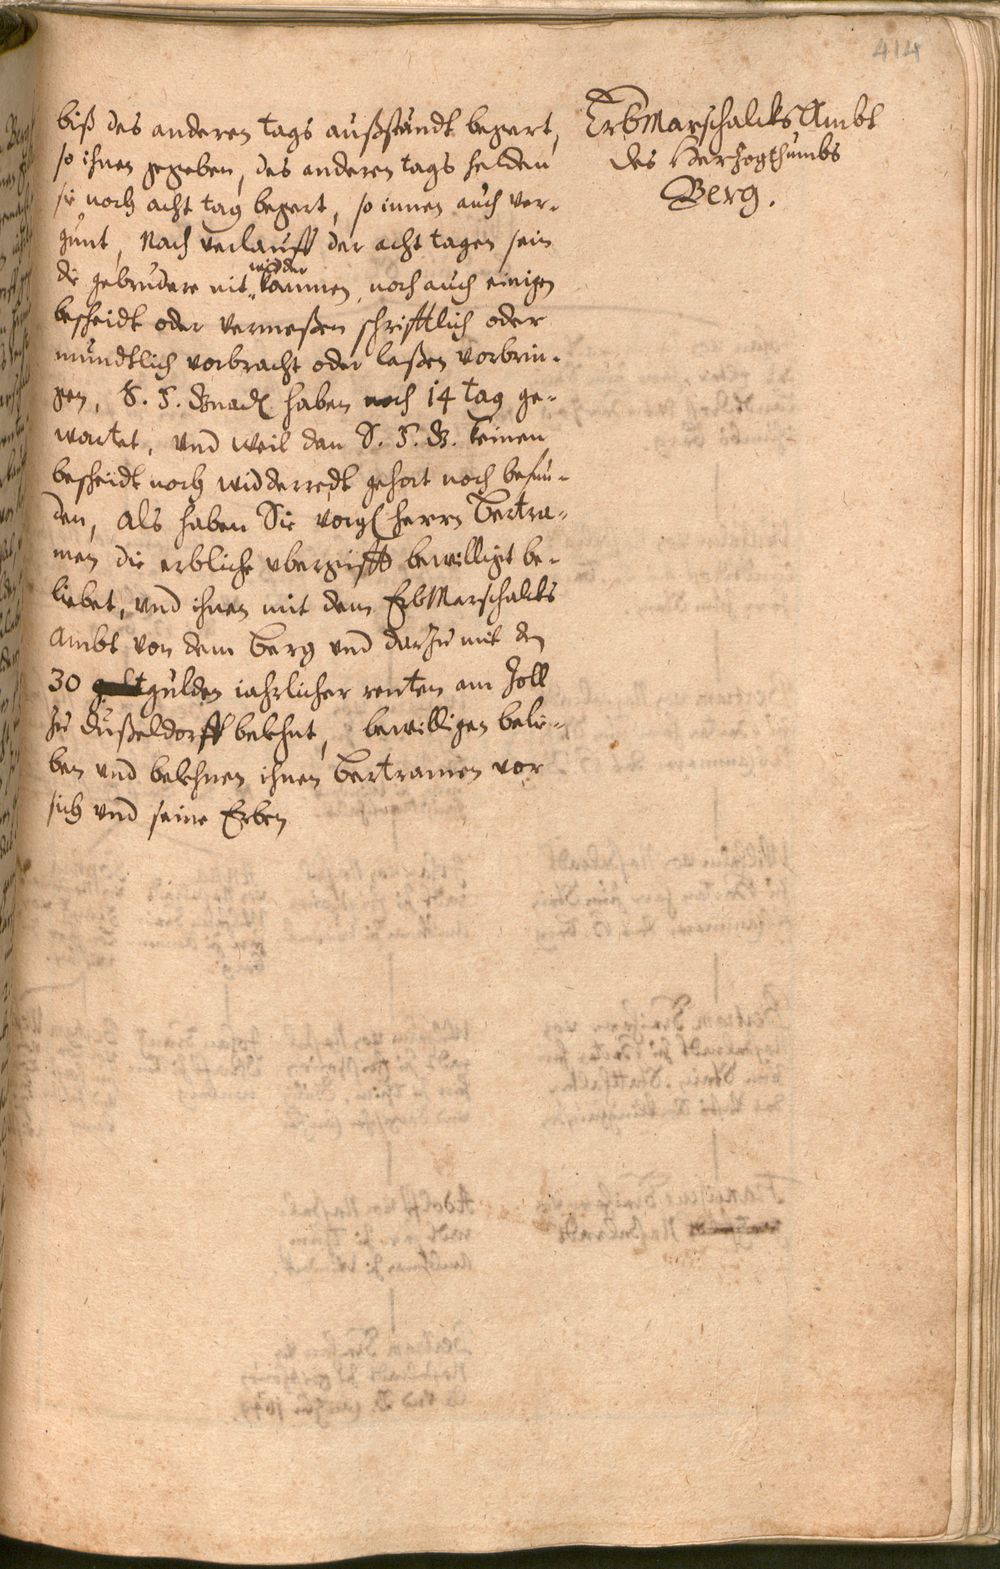 414
ErbMarschalcks Ambt
des Herzogthumbs
Berg.
biß des anderen tags außstandt begert,
so ihnen gegeben, des anderen tags helden
sie noch acht tag begert, so innen auch ver-
gunt, Nach verlauff der acht tagen sein
die gebrudere nit widder kommen, noch auch einigen
bescheidt oder vermeßen schrifftlich oder
mundtlich vorbracht oder laßen vorbrin-
gen, S. F. Gnad. haben noch 14 tag ge-
wartet, und weil dan S. F. G. keinen
bescheidt noch widderredt gehort noch befun-
den, als haben Sie vorgl herrn Bertra-
men die erbliche ubergifft bewilligt be-
liebet, und ihnen mit dem ErbMarschalcks
Ambt von dem Berg und darzu mit den
30 gulden iahrlicher renten am Zoll
zu Dußeldorff belehnt, bewilligen belie-
ben und belehnen ihnen Bertramen vor
sich und seine Erben